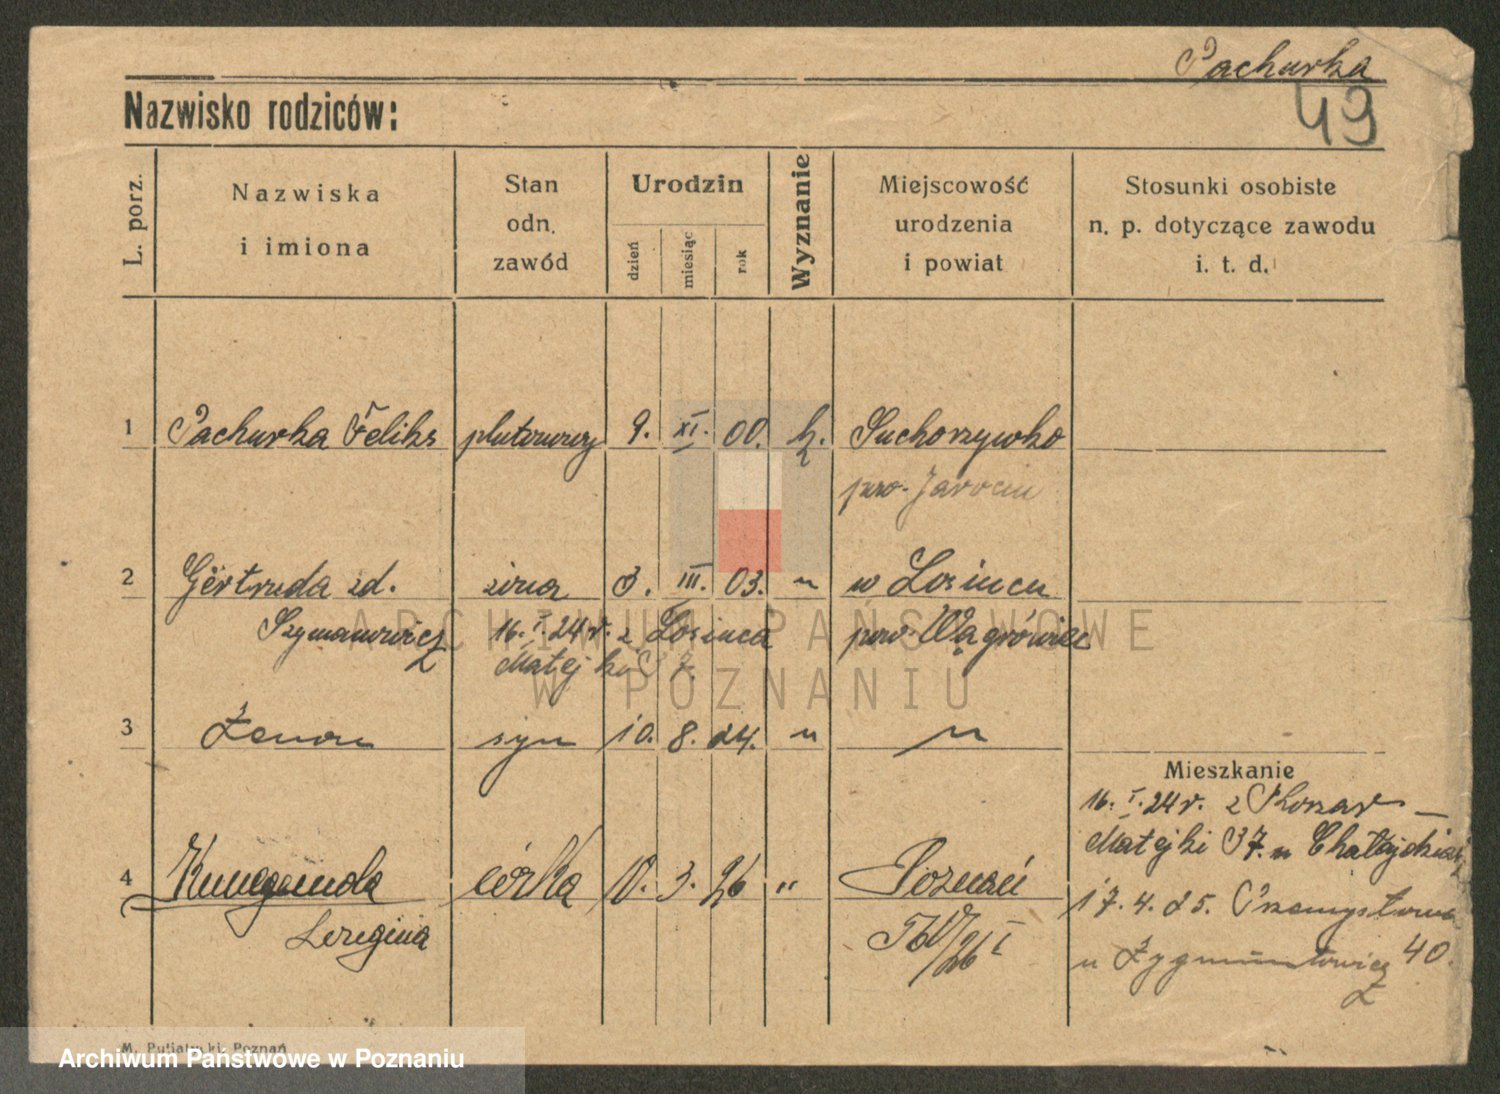 Pachurka
49
Nazwisko rodziców:
L. porz.
Nazwiska
i imiona
Stan
odn.
zawód
Urodzin
dzień
miesiąc
rok
Wyznanie
Miejscowość
urodzenia
i powiat
Stosunki osobiste
n. p. dotyczące zawodu
i. t. d.
1 Pachurka Feliks plutonowy 9. XI. 00. k. Suchorzywko
pow. Jarocin
2 Gertruda zd. żona 3. III. 03. " w Łosińcu
Szymanowicz 16. I. 24 r. z Łosińca pow. Wągrówiec
Matejki 37.
3 Zenon syn 10. 8. 24. " "
Mieszkanie
16. I. 24 r. z Koszar
Matejki 37. u
4 Kunegunda córka 10. 3. 26 " Poznań
17. 4. 25. Przemysłowa
40.
u Zygmuntowicz
ARCHIWUM PAŃSTWOWE
W POZNANIU
M. Putiatycki, Poznań
Archiwum Państwowe w Poznaniu